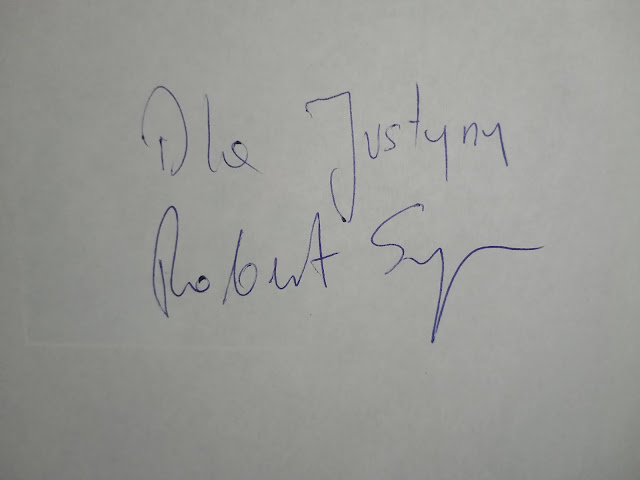 Dla Justyny
Robert